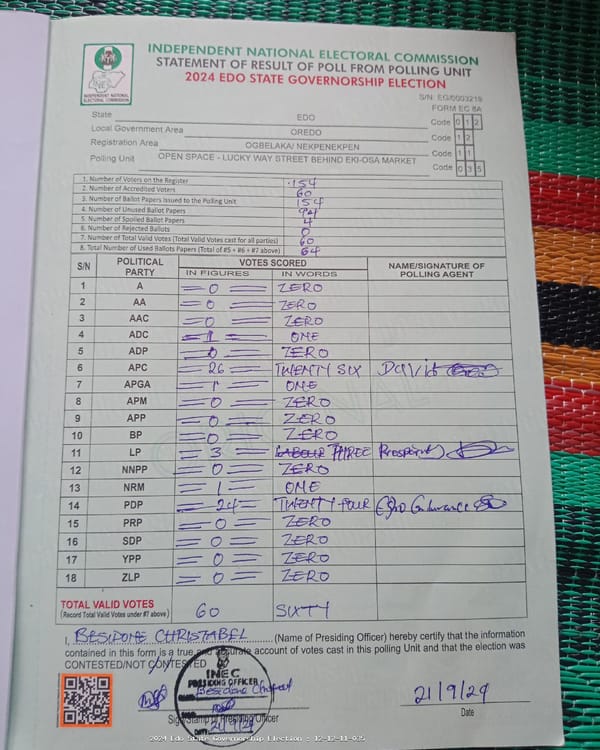 INDEPENDENT NATIONAL ELECTORAL COMMISSION
STATEMENT OF RESULT OF POLL FROM POLLING UNIT
2024 EDO STATE GOVERNORSHIP ELECTION
INDEPENDENT NATIONAL ELECTORAL COMMISSION
S/N: EG/0003219
FORM EC 8A
State EDO Code 0 1 2
Local Government Area OREDO Code 1 2
Registration Area OGBELAKA/ NEKPENEKPEN Code 1 1
Polling Unit OPEN SPACE - LUCKY WAY STREET BEHIND EKI-OSA MARKET Code 0 3 5
1. Number of Voters on the Register 154
2. Number of Accredited Voters 60
3. Number of Ballot Papers Issued to the Polling Unit 154
4. Number of Unused Ballot Papers
5. Number of Spoiled Ballot Papers 4
6. Number of Rejected Ballots 0
7. Number of Total Valid Votes (Total Valid Votes cast for all parties) 60
8. Total Number of Used Ballots Papers (Total of #5 + #6 + #7 above) 64
S/N POLITICAL PARTY VOTES SCORED NAME/SIGNATURE OF POLLING AGENT
IN FIGURES IN WORDS
1 A 0 ZERO
2 AA 0 ZERO
3 AAC 0 ZERO
4 ADC 1 ONE
5 ADP 0 ZERO
6 APC 26 TWENTY SIX David
7 APGA 1 ONE
8 APM 0 ZERO
9 APP 0 ZERO
10 BP 0 ZERO
11 LP 3 THREE Prosperity
12 NNPP 0 ZERO
13 NRM 1 ONE
14 PDP 24 TWENTY FOUR
15 PRP 0 ZERO
16 SDP 0 ZERO
17 YPP 0 ZERO
18 ZLP 0 ZERO
TOTAL VALID VOTES 60 SIXTY
(Record Total Valid Votes under #7 above)
I, BESIDONE CHRISTABEL (Name of Presiding Officer) hereby certify that the information
contained in this form is a true and accurate account of votes cast in this polling Unit and that the election was
CONTESTED/NOT CONTESTED
INEC
PRESIDING OFFICER
21/9/24
21/9/24
Sign/Stamp of Presiding Officer Date
2024 Edo State Governorship Election : 12-12-11-035